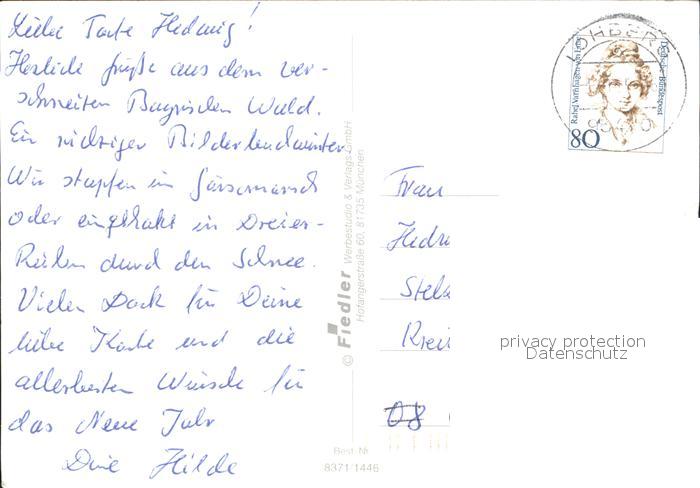 Liebe Tante Hedwig!
Herzliche Grüße aus dem ver-
schneiten Bayrischen Wald.
Ein richtiger Bilderbuchwinter
Wir stapfen im Gänsemarsch
oder eingehakt in Dreier-
Reihen durch den Schnee.
Vielen Dank für Deine
liebe Karte und die
allerbesten Wünsche für
das Neue Jahr
Deine Hilde
© Fiedler Werbestudio & Verlags-GmbH
Hofangerstraße 60, 81735 München
Best. Nr.
8371/1446
Frau
Hedw
Stel
Krei
08
Rahel Varnhagen von Ense
Deutsche Bundespost
80
privacy protection
Datenschutz